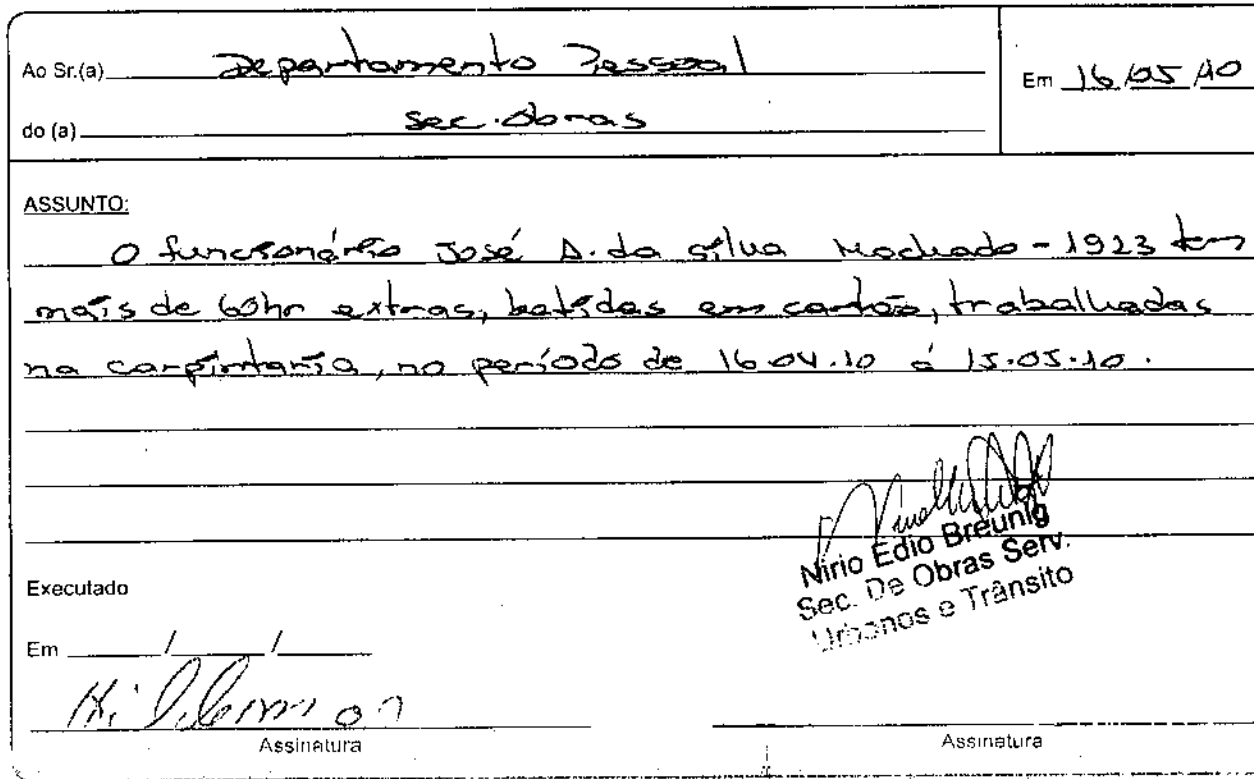 Ao Sr.(a) Departamento Pessoal
Em 16/05/10
do (a) Sec. Obras
ASSUNTO:
O funcionário José A. da Silva Machado - 1923 tem
mais de 60hr extras, batidas em cartão, trabalhadas
na carpintaria, no período de 16.04.10 á 15.05.10.
Nirio Edio Breunig
Sec. De Obras Serv.
Urbanos e Trânsito
Executado
Em / /
Assinatura
Assinatura